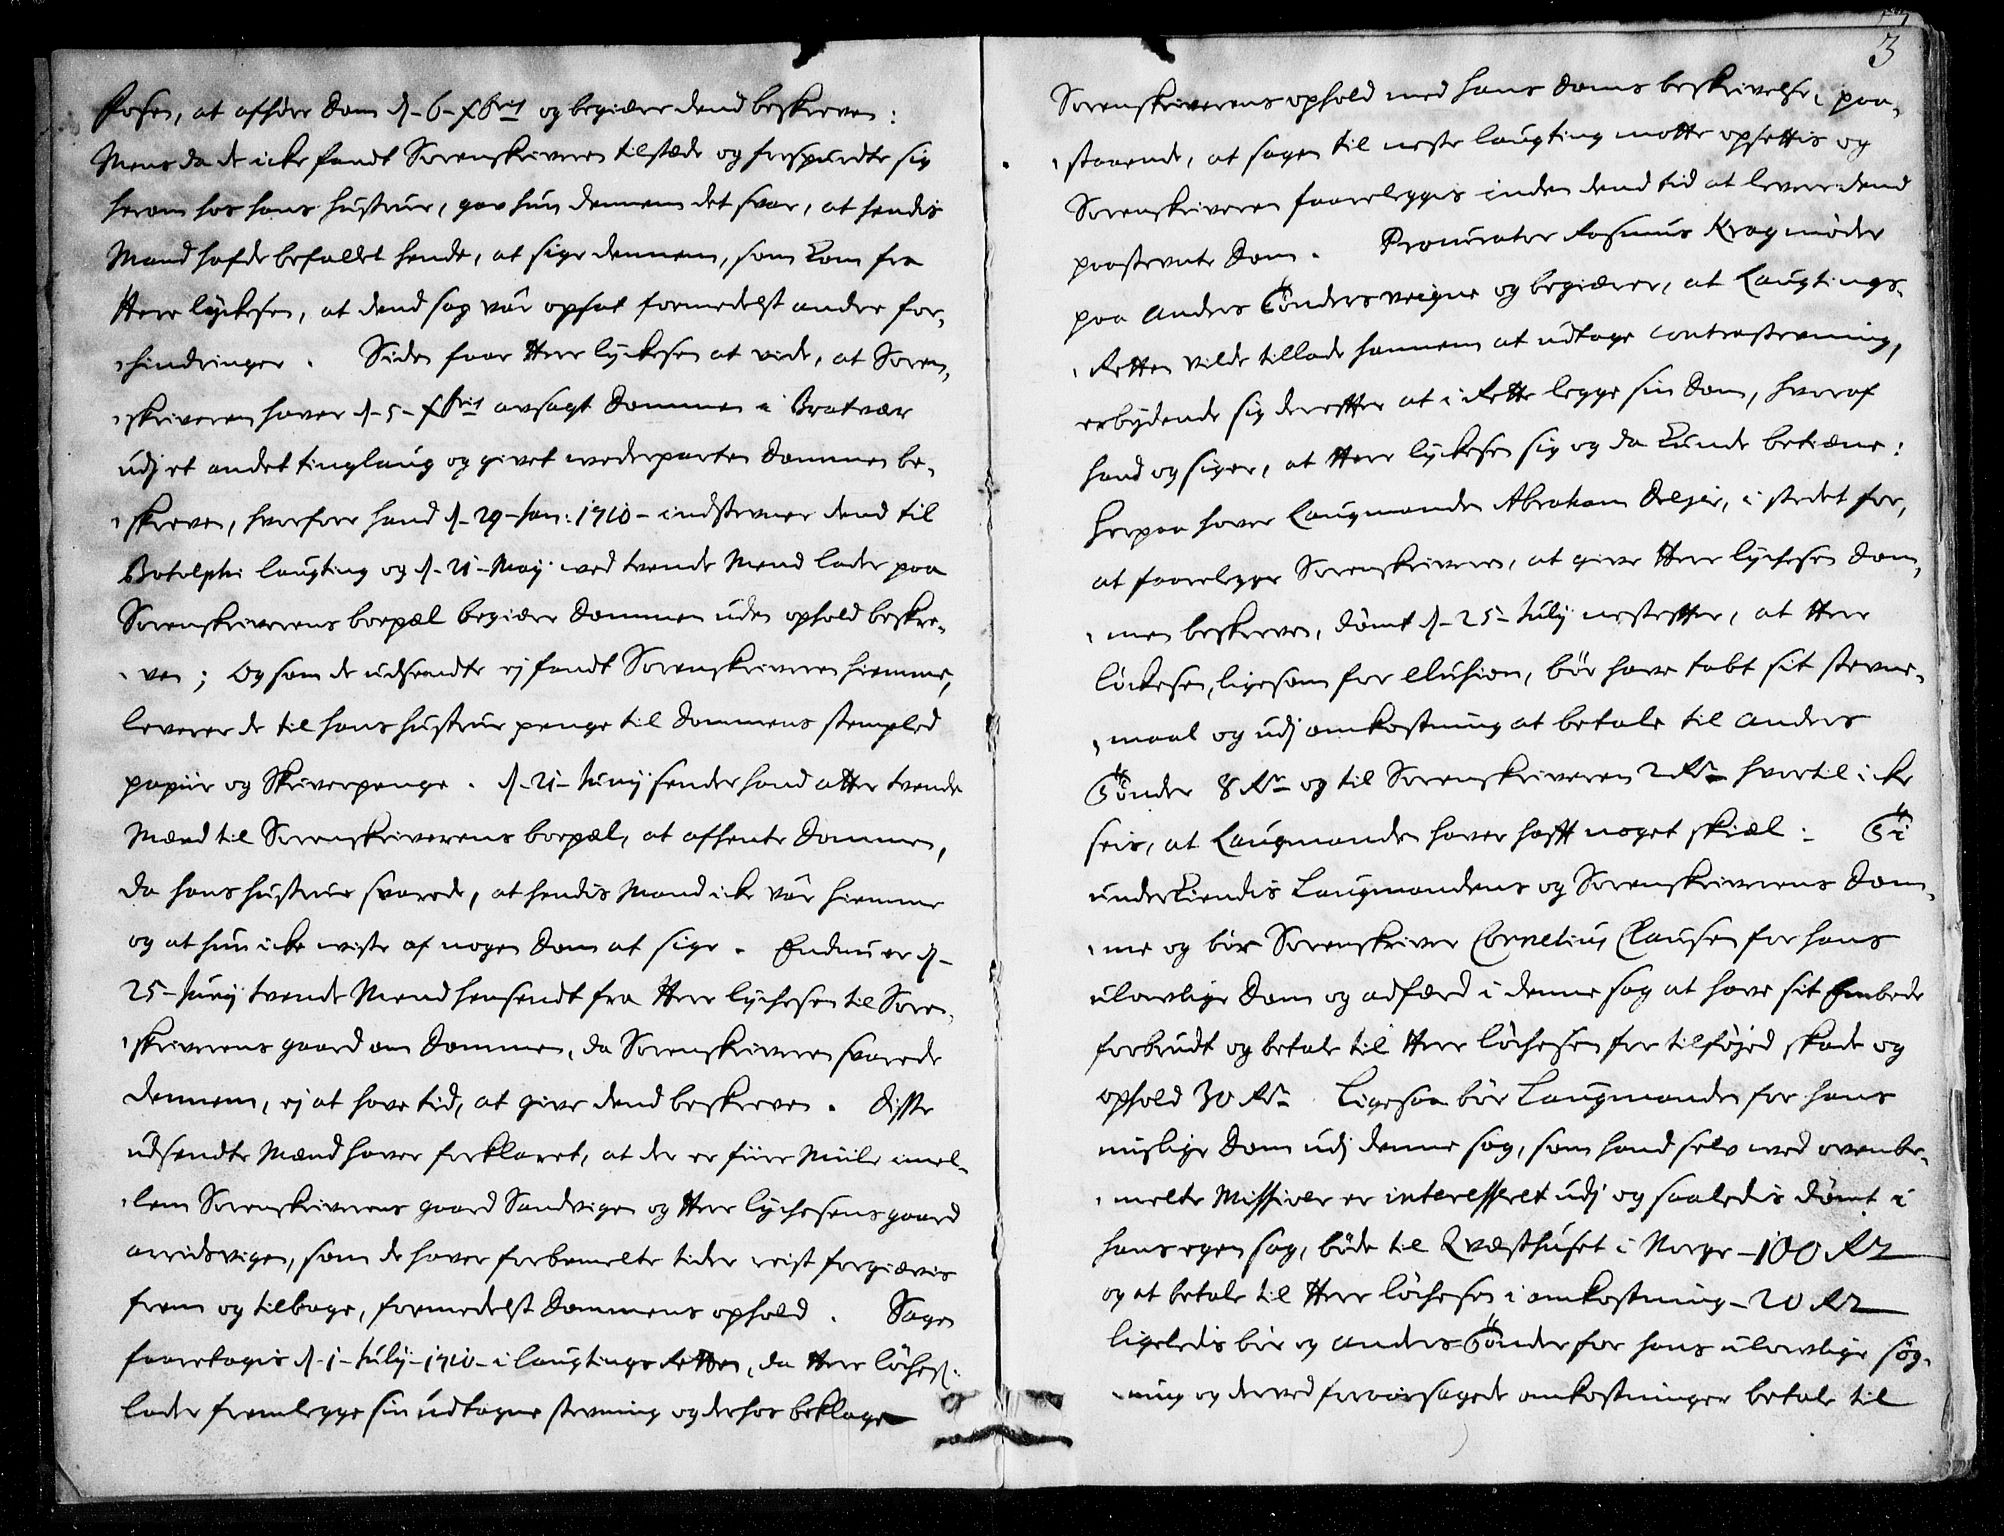 3
at afhøre Dom d. 6 Xbris og begiære dend beskreven:
Mens da de icke fandt Sorenskriveren tilstæde og forspurdte sig
herom hos hans hustrue, gav hun dennem det svar, at hendis
Mand hafde befallet hende, at sige dennem, som kom fra
Herr Lyckesen, at dend sag var opsat formedelst andre for-
hindringer. Siden faar Herr Lyckesen at vide, at Soren-
skriveren haver d. 5 Xbris avsagt Dommen i Bratvær
udj et andet tinglaug og givet wederparten Dommen be-
skreven, hvorfore hand d. 29 Jan: 1710 indstevner dend til
Botolphi laugting og d. 21 Maij ved tvende Mend lader paa
Sorenskriverens boepæl begiære Dommen uden ophold beskre-
ven; Og som de udsendte ej fandt Sorenskriveren hiemme,
leverer de til hans hustrue penge til Dommens stempled
papiir og Skriverpenge. d. 21 Junij sender hand atter tvende
Mænd til Sorenskriverens boepæl, at afhente Dommen,
da hans hustrue svarede, at hendis Mand icke var hiemme
og at hun icke wiste af nogen Dom at sige. Endnu er d.
25 Junij tvende Mend hensendt fra Herr Lychesen til Soren-
skriverens gaard om Dommen, da Sorenskriveren svarede
dennem, ej at have tid, at give dend beskreven. Disse
udsendte Mænd haver forklaret, at der er fiire Miile imel-
lem Sorenskriverens gaard Sandvigen og Herr Lychesens gaard
arridsvigen, som de haver forbemelte tider reist forgiævis
frem og tilbage, formedelst Dommens ophold. Sagen
foretagis d. 1 Julij 1710 i laugtings Retten, da Herr Löches:
lader fremlegge sin udtagne stevning og derhos beklage
Sorenskriverens ophold med hans Doms beskrivelse, paa-
staaende, at sagen til neste laugting motte opsettis og
Sorenskriveren forelegges inden dend tid at levere dend
paastevnte Dom. Procurator Rasmus Krag møder
paa Anders Tönders veigne og begiærer, at Laugtings-
Retten vilde tillade hannem at udtage contrastevning,
erbydende sig derefter at i Rette legge sin Dom, hvoraf
hand og siger, at Herr Lyckesen sig og da kunde betiæne:
herpaa haver Laugmanden Abraham Dreyer, i stedet for,
at forelegge Sorenskriveren, at give Herr Lychesen Dom-
men beskreven, dömt d. 25 Julij nestefter, at Herr
Löckesen, ligesom for elusion, bör have tabt sit stevne-
maal og udj omkostning at betale til Anders
Tönder 8 Rdr og til Sorenskriveren 2 Rdr hvortil icke
seis, at Laugmanden haver haft noget skiæl: Ti
underkiendis Laugmandens og Sorenskriverens Dom-
me og bör Sorenskriver Cornelius Clausen for hans
ulovlige Dom og adfærd i denne sag at have sit Embede
forbrudt og betale til Herr Löchesen for tilföjed skade og
ophold 30 Rdr Ligesaa bör Laugmanden for hans
mislige Dom udj denne sag, som hand selv ved ovenbe-
melte Missiver er interesseret udj og saaledis dömt i
hans egen sag, böde til Qvæsthuset i Norge 100 Rdr
og at betale til Herr Löchesen i omkostning 20 Rdr
ligeledis bör og Anders Tönder for hans ulovlige søg-
ning og derved foraarsagede omkostninger betale til